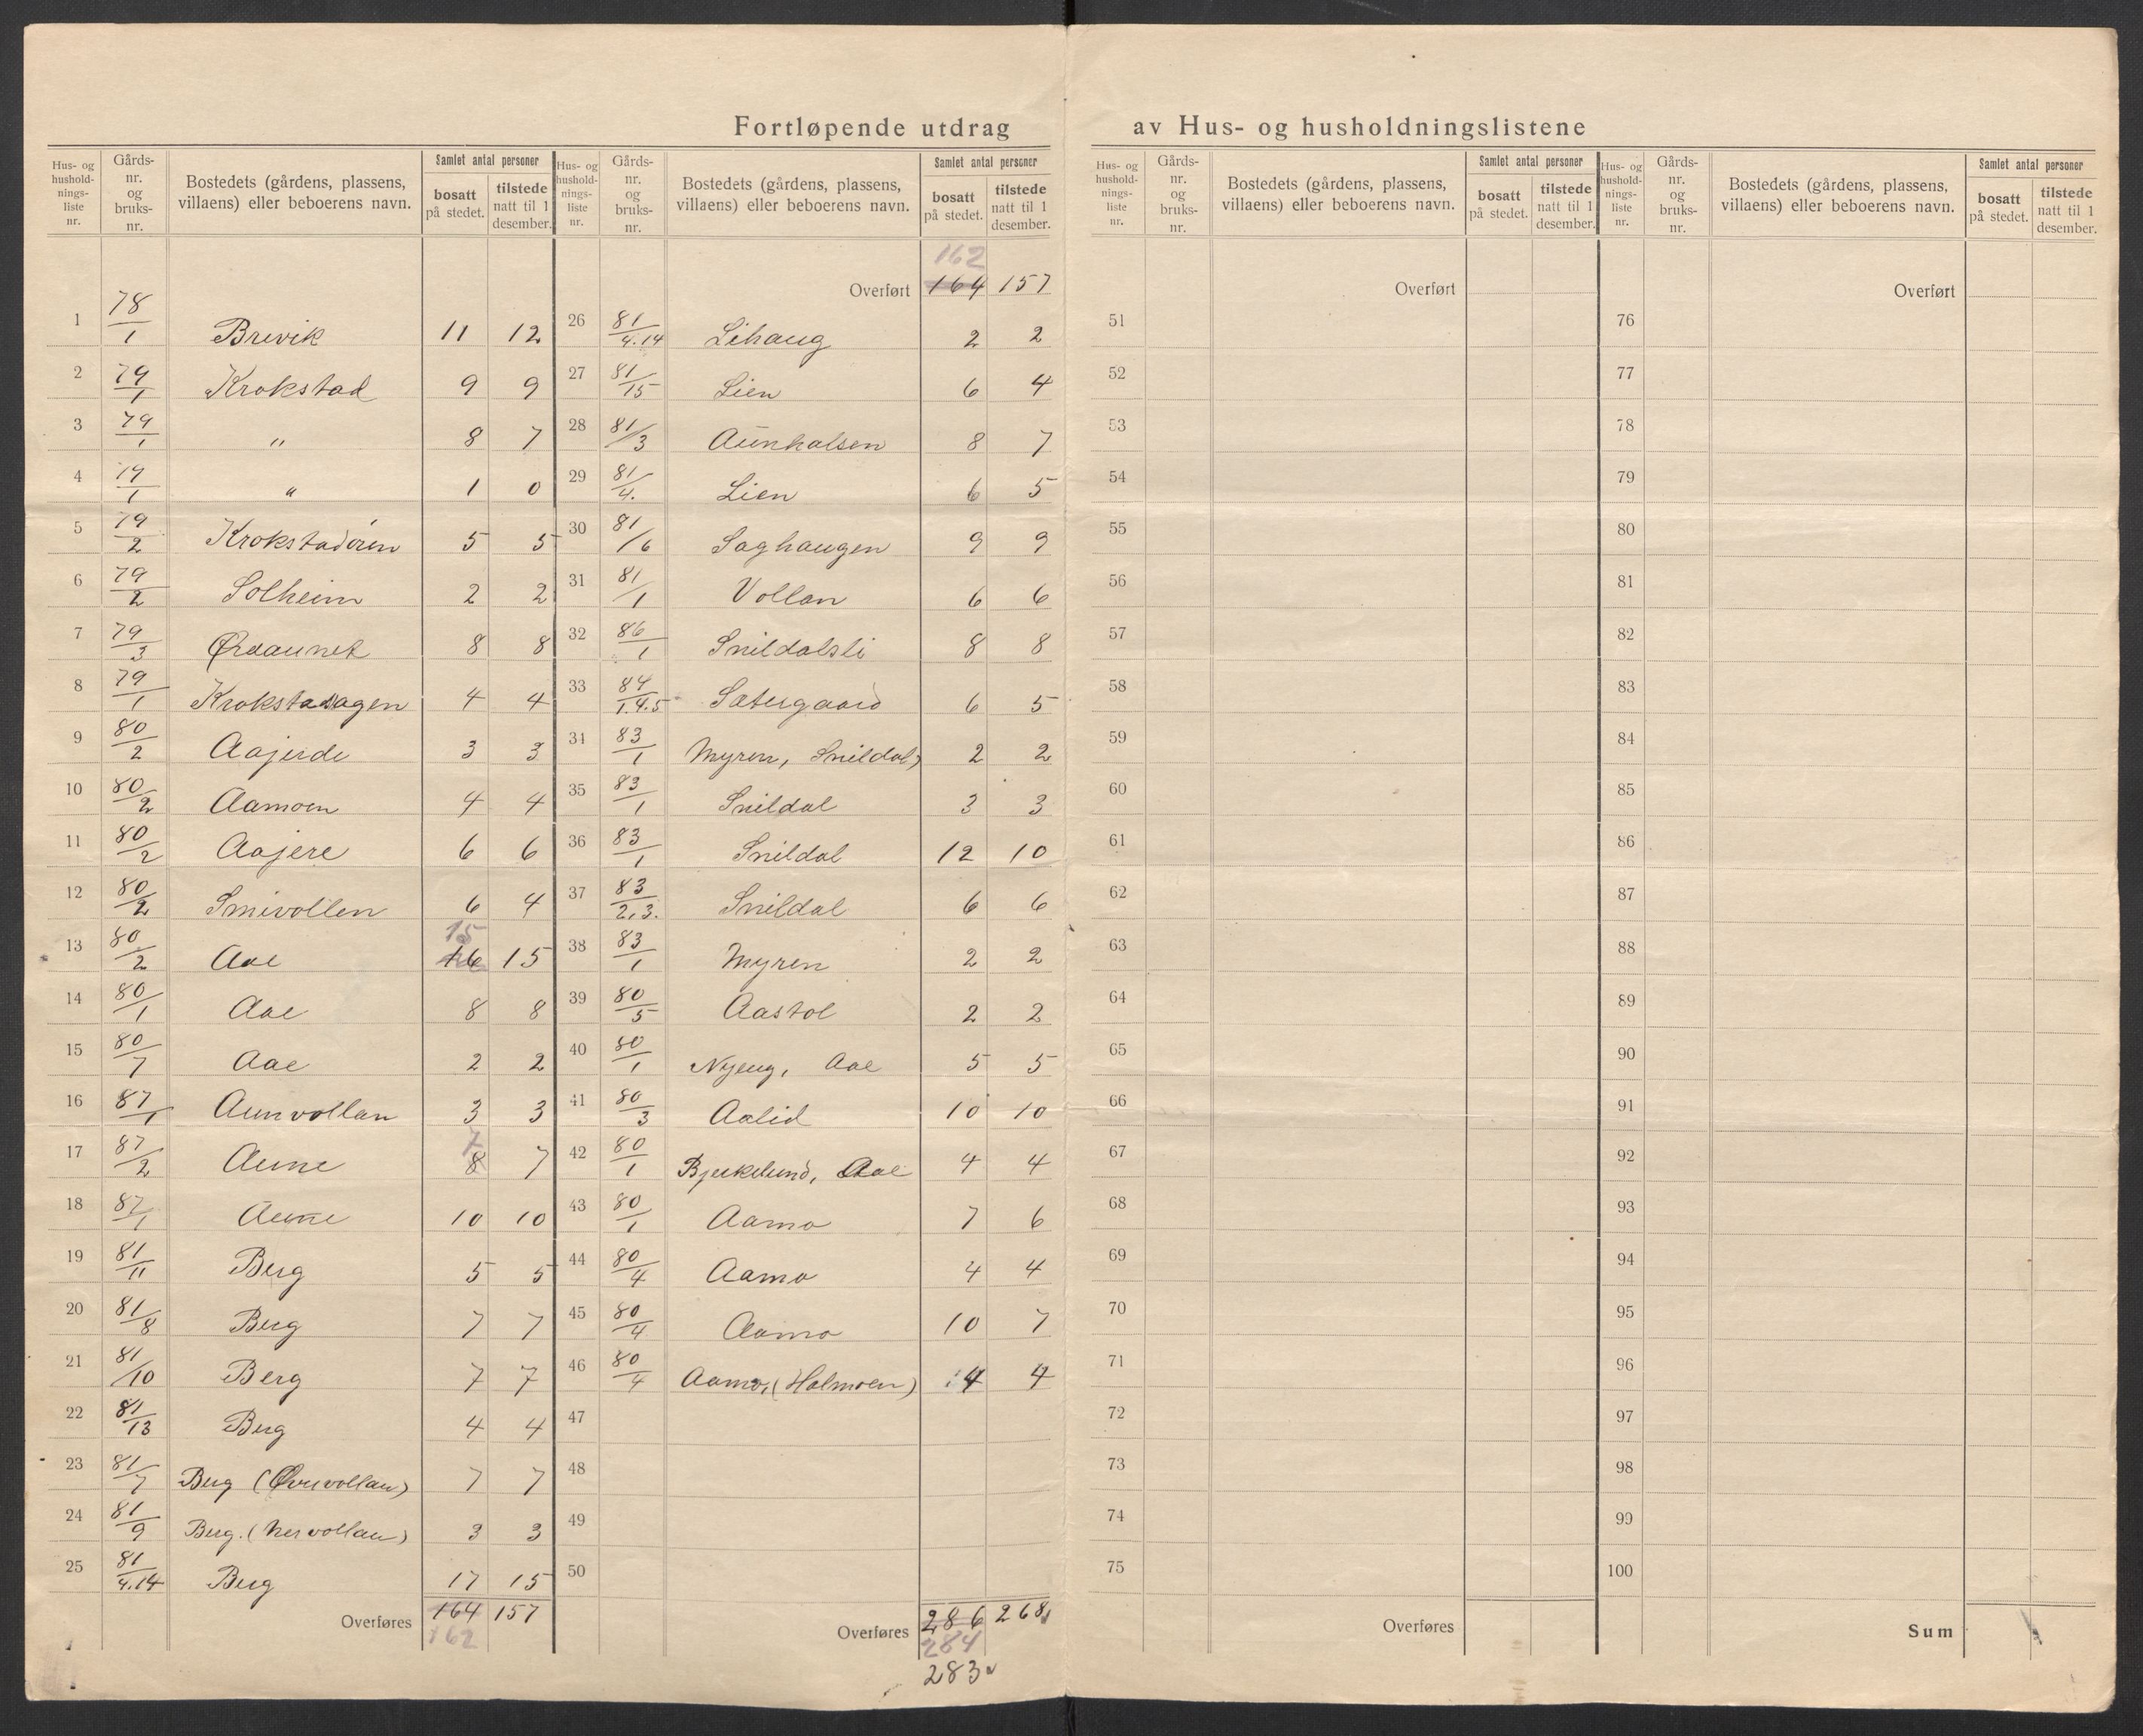 Fortløpende utdrag av Hus- og husholdningslistene
Hus- og husholdningsliste nr. | Gårds-nr. og bruks-nr. | Bostedets (gårdens, plassens, villaens) eller beboerens navn. | Samlet antal personer | bosatt på stedet. | tilstede natt til 1 desember.
1 78/1 Brevik 11 12
2 79/1 Krokstad 9 9
3 79/1 " 8 7
4 79/1 " 1 0
5 79/2 Krokstadøren 5 5
6 79/2 Solheim 2 2
7 79/3 Øraaunet 8 8
8 79/1 Krokstadhagen 4 4
9 80/2 Aajerde 3 3
10 80/2 Aamoen 4 4
11 80/2 Aajere 6 6
12 80/2 Smivollen 6 4
13 80/2 Aae 16 15 15
14 80/1 Aae 8 8
15 80/7 Aae 2 2
16 87/1 Aunvollan 3 3
17 87/2 Aune 8 7 7
18 87/1 Aune 10 10
19 81/11 Berg 5 5
20 81/8 Berg 7 7
21 81/10 Berg 7 7
22 81/13 Berg 4 4
23 81/7 Berg (Øvrevollan) 7 7
24 81/9 Berg. (Nervollan) 3 3
25 81/4.14 Berg 17 15
Overføres 164 157
162
Hus- og husholdningsliste nr. | Gårds-nr. og bruks-nr. | Bostedets (gårdens, plassens, villaens) eller beboerens navn. | Samlet antal personer | bosatt på stedet. | tilstede natt til 1 desember.
162
Overført 164 157
26 81/4.14 Lihaug 2 2
27 81/15 Lien 6 4
28 81/3 Aunhalsen 8 7
29 81/4. Lien 6 5
30 81/6 Saghaugen 9 9
31 81/1 Vollan 6 6
32 86/1 Snildalsli 8 8
33 84/1.4.5 Sætergaard 6 5
34 83/1 Myren, Snildal, 2 2
35 83/1 Snildal 3 3
36 83/1 Snildal 12 10
37 83/2,3. Snildal 6 6
38 83/1 Myren 2 2
39 80/5 Aastol 2 2
40 80/1 Nyeng, Aae 5 5
41 80/3 Aalid 10 10
42 80/1 Bjerkelund, Aae 4 4
43 80/1 Aamo 7 6
44 80/4 Aamo 4 4
45 80/4 Aamo 10 7
46 80/4 Aamo, (Holmoen) 4 4
47
48
49
50
Overføres 286 268
284
283
Hus- og husholdningsliste nr. | Gårds-nr. og bruks-nr. | Bostedets (gårdens, plassens, villaens) eller beboerens navn. | Samlet antal personer | bosatt på stedet. | tilstede natt til 1 desember.
Overført
51
52
53
54
55
56
57
58
59
60
61
62
63
64
65
66
67
68
69
70
71
72
73
74
75
Overføres
Hus- og husholdningsliste nr. | Gårds-nr. og bruks-nr. | Bostedets (gårdens, plassens, villaens) eller beboerens navn. | Samlet antal personer | bosatt på stedet. | tilstede natt til 1 desember.
Overført
76
77
78
79
80
81
82
83
84
85
86
87
88
89
90
91
92
93
94
95
96
97
98
99
100
Sum